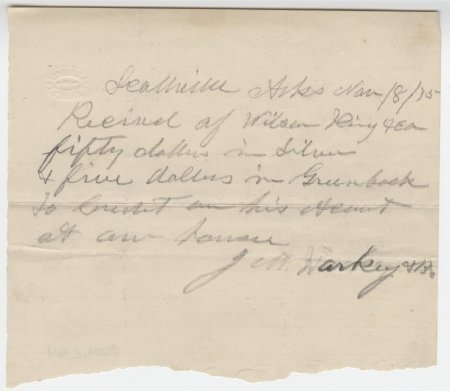 Scottsville Arks Nov 18/75
Recived of Wilson King & co
fifty dollers in Silver
& five dollers in Greenback
to Credit on his Acount
at our house
J M Harkey & B.